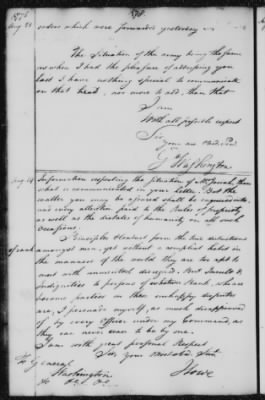 1776 578.
Aug. 21 orders which were forwarded yesterday.
The Situation of the army being the same
as when I had the pleasure of addressing you
last I have nothing special to communicate
on that head, nor more to add, than that
I am
With all possible respect
Sir
Your ob.
G Washington
Aug. 19 Information respecting the Situation of
what is communicated in your Letter. But the
you may be afraid shall be
and every attention paid to the Rules of propriety
as well as the dictates of humanity on all such
occasions.
Principles
of each amongst men, yet without a compliant held in
the manners of the world they are too apt to
meet with unmerited disregard. But Insults &
Indignities to persons of whatever Rank, who are
become parties in these unhappy disputes
are, I persuade myself, as much disapproved
of, by every Officer under my Command, as
they can ever be by me.
I am with great personal Respect
Sir Your Most obed. Servt.
To General
Washington
Howe